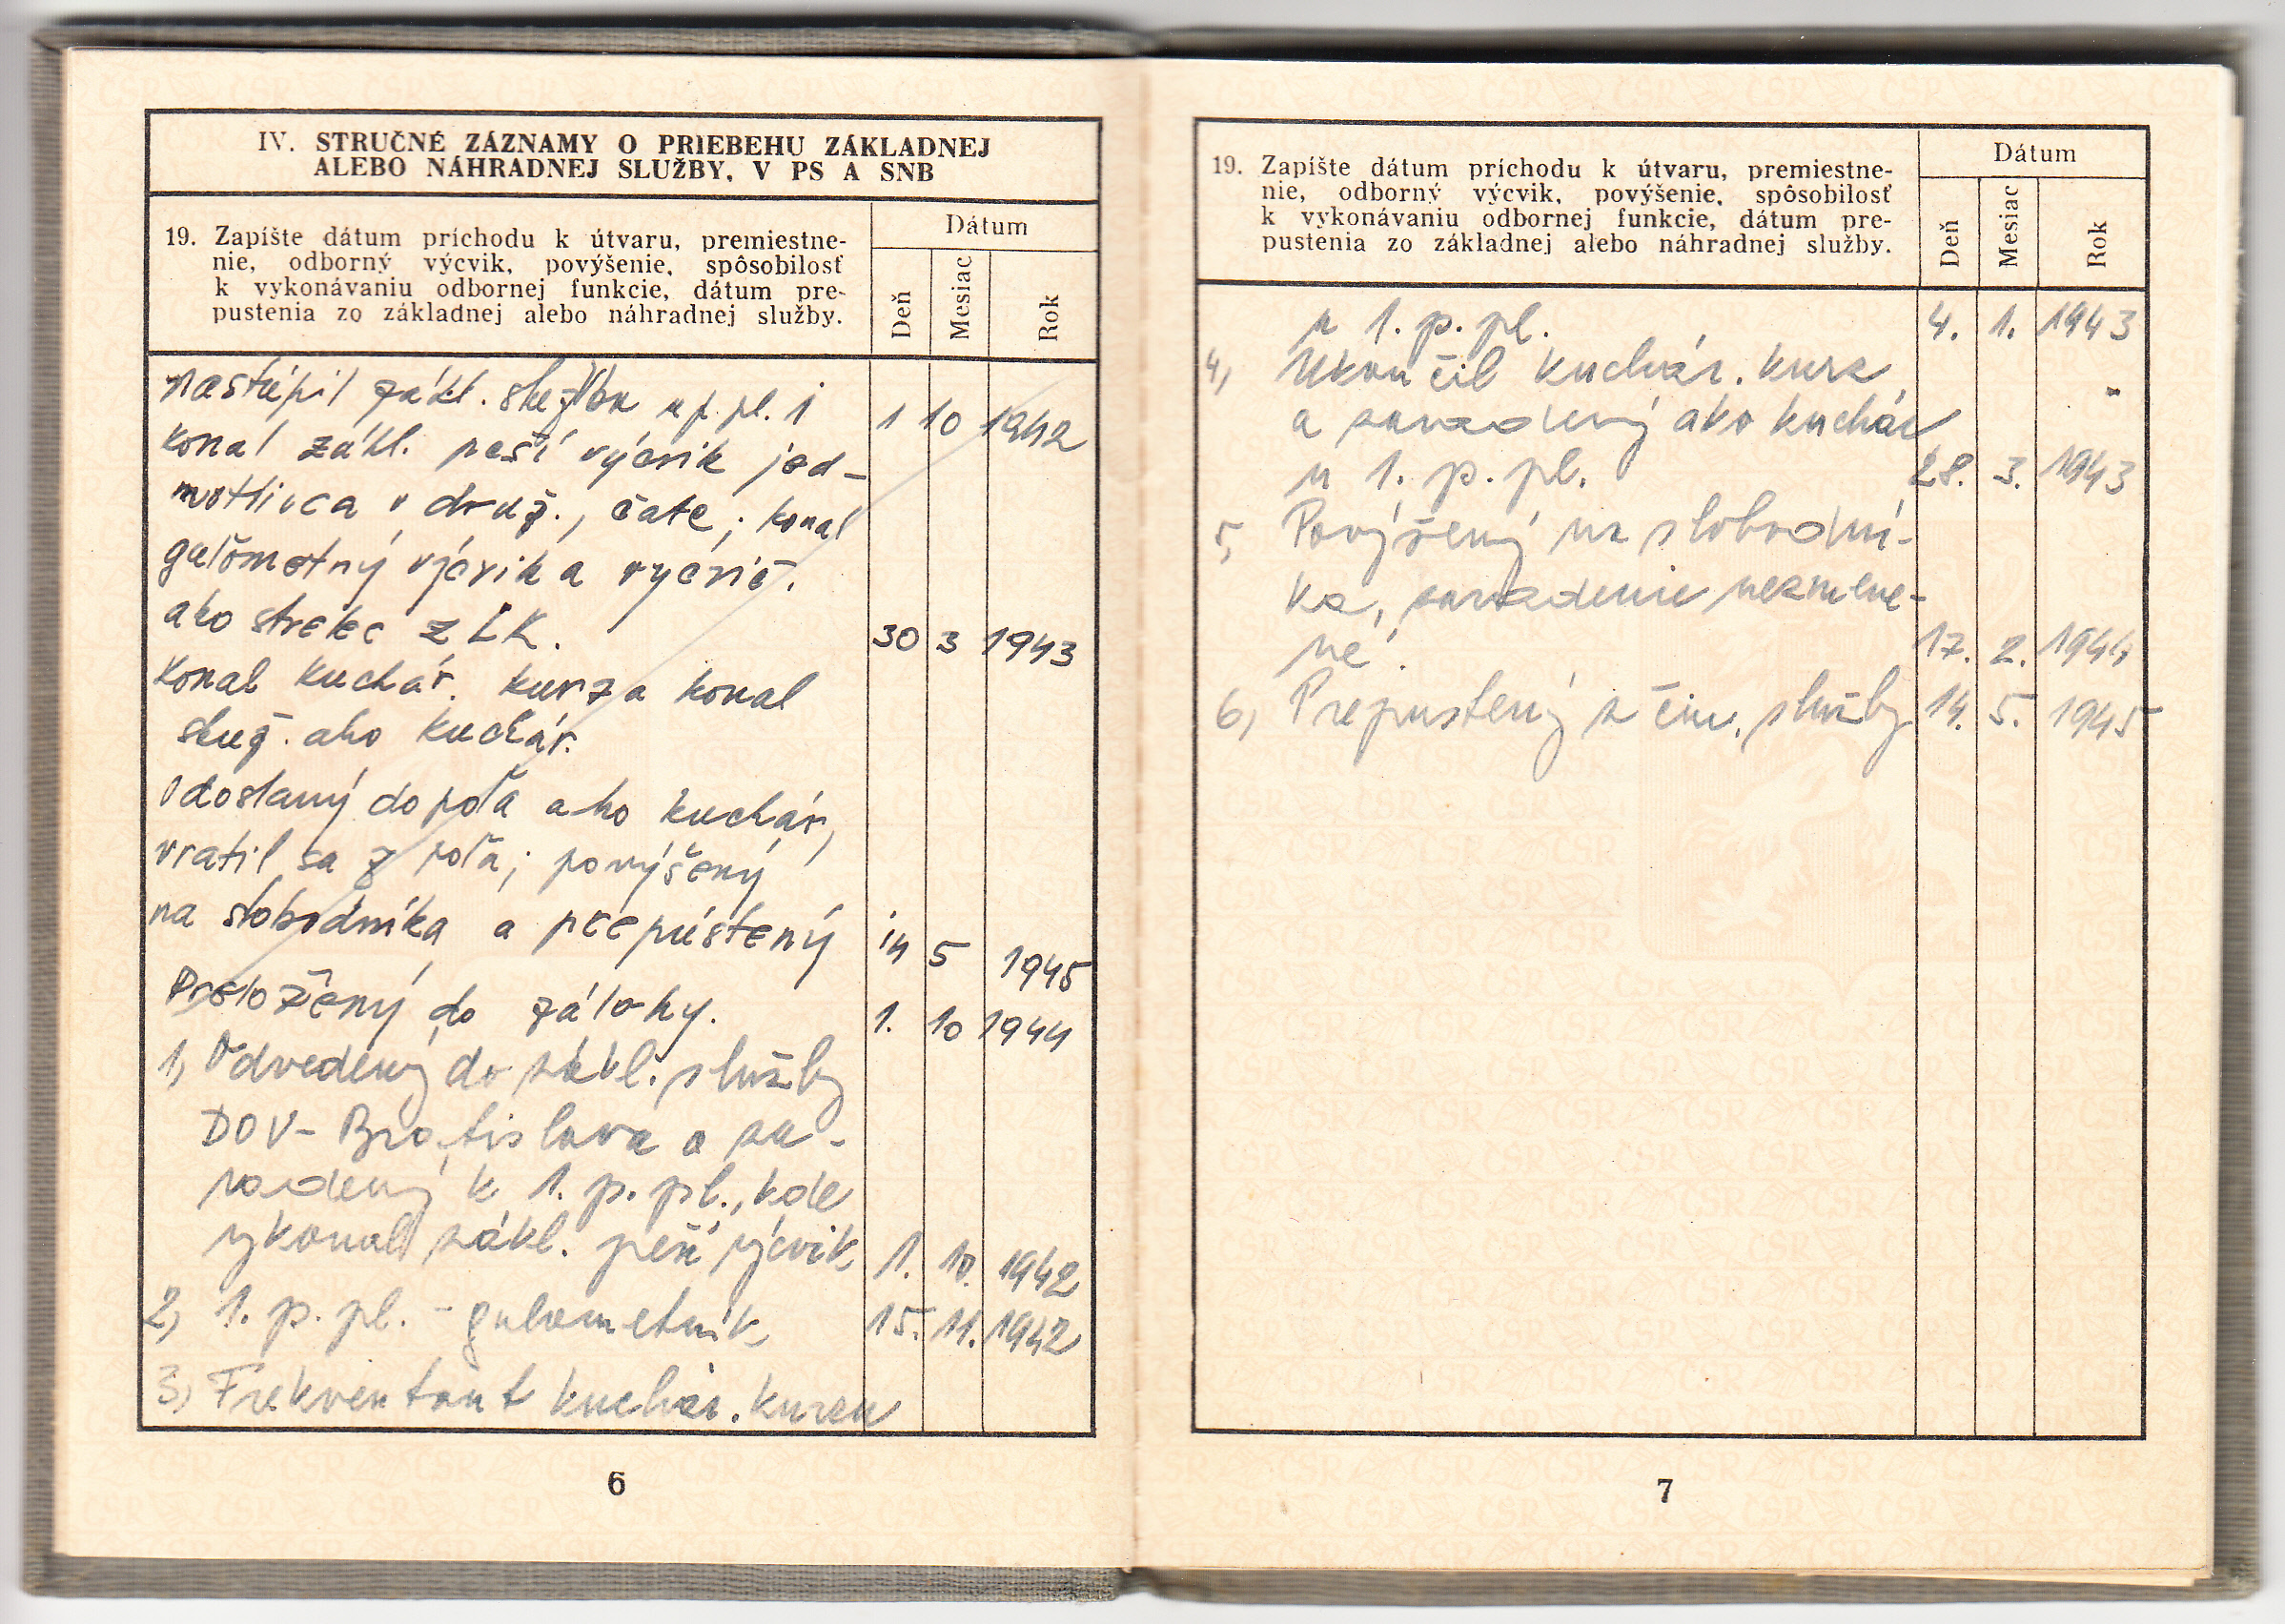 IV. STRUČNÉ ZÁZNAMY O PRIEBEHU ZÁKLADNEJ
ALEBO NÁHRADNEJ SLUŽBY, V PS A SNB
19. Zapíšte dátum príchodu k útvaru, premiestne-
nie, odborný výcvik, povýšenie, spôsobilosť
k vykonávaniu odbornej funkcie, dátum pre-
pustenia zo základnej alebo náhradnej služby.
Dátum
Deň Mesiac Rok
nastúpil zákl. službu u p. pl. 1 1 10 1942
konal základ. peší výcvik jed-
notlivca v druž., čate; konal
guľometný výcvik a vycvič.
ako strelec z LK. 30 3 1943
Konal kuchár. kurz a konal
služ. ako kuchár.
Odoslaný do poľa ako kuchár,
vrátil sa z poľa; povýšený
na slobodníka a prepustený 14 5 1945
Preložený do zálohy. 1. 10 1944
1, Odvedený do zákl. služby
DOV- Bratislava a za-
radený k 1. p. pl., kde
vykonal zákl. peší výcvik 1. 10. 1942
2, 1. p. pl. - gulometník 15. 11. 1942
3, Frekventant kuchár. kurzu
6
19. Zapíšte dátum príchodu k útvaru, premiestne-
nie, odborný výcvik, povýšenie, spôsobilosť
k vykonávaniu odbornej funkcie, dátum pre-
pustenia zo základnej alebo náhradnej služby.
Dátum
Deň Mesiac Rok
u 1. p. pl. 4. 1. 1943
4, Ukončil kuchár. kurz
a zaradený ako kuchár
u 1. p. pl. 28. 3. 1943
5, Povýšený na slobodní-
ka, zaradenie nezmene-
né. 17. 2. 1944
6, Prepustený z čin. služby 14. 5. 1945
7